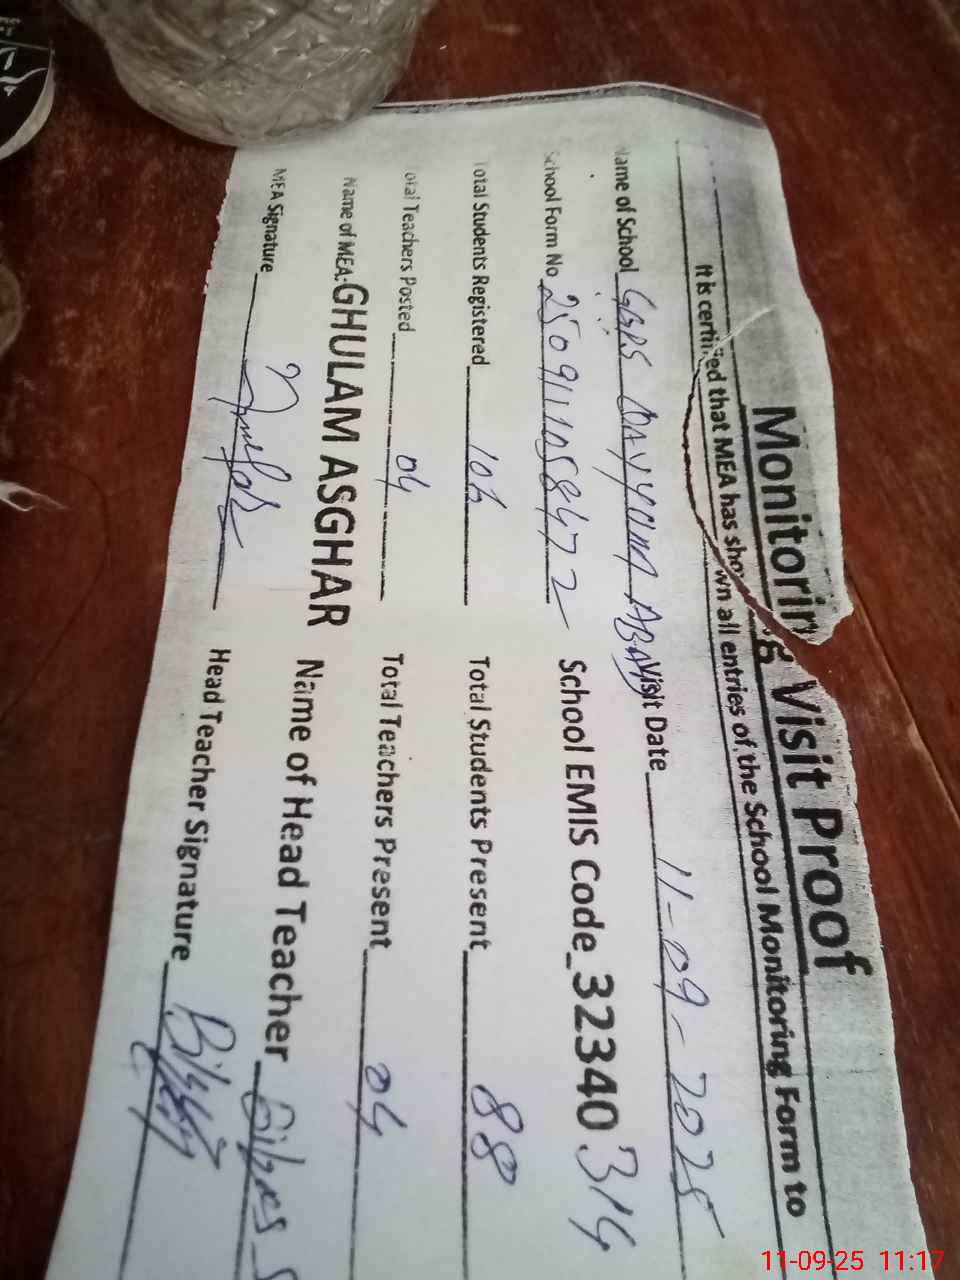 Monitoring Visit Proof
It is certified that MEA has shown all entries of the School Monitoring Form to
Name of School GGPS Visit Date 11-09-2025
School Form No 2509111058472 School EMIS Code 32340314
Total Students Registered Total Students Present 88
Total Teachers Posted 04 Total Teachers Present 04
Name of MEA: GHULAM ASGHAR Name of Head Teacher
MEA Signature Head Teacher Signature
11-09-25 11:17